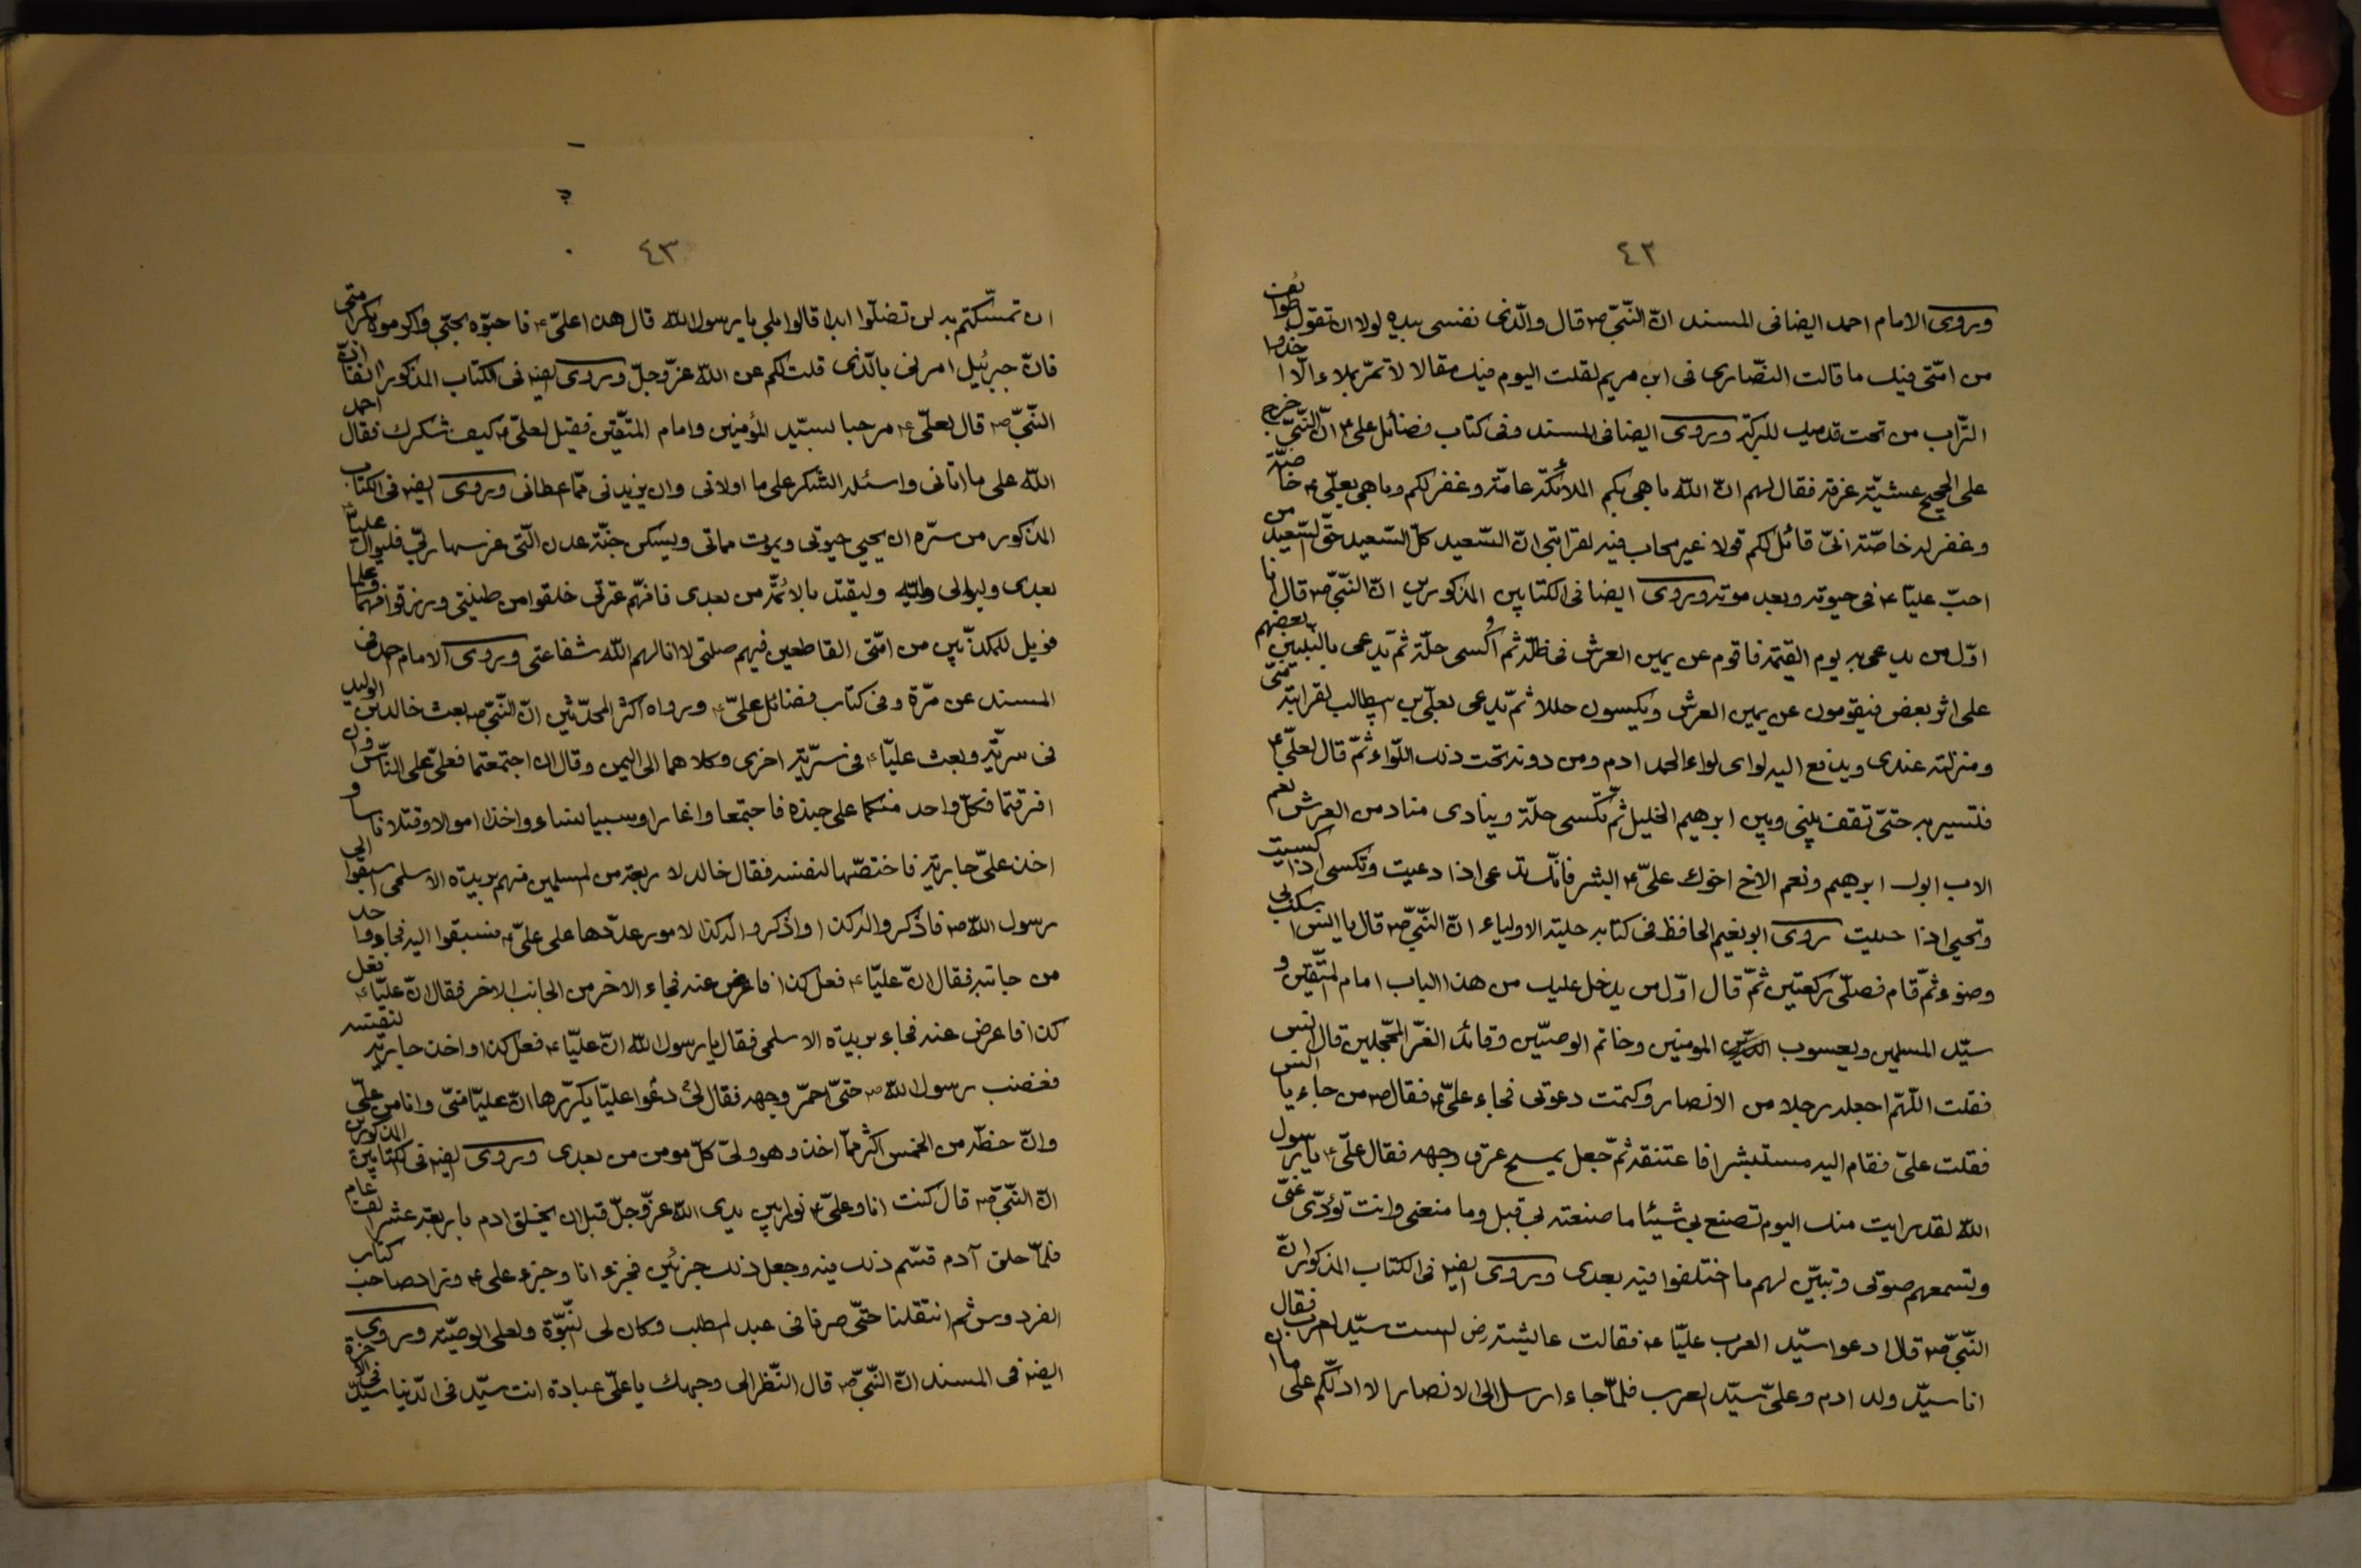 ٤٢
وروى الامام احمد ايضا فى المسند انّ النّبىّ ص قال والّذى نفسى بيده لولا ان تقول طوائف
من امّتى فيك ما قالت النّصارى فى ابن مريم لقلت اليوم فيك مقالا لا تمرّ بملاء الّا اخذوا
التّراب من تحت قدميك للبركة وروى ايضا فى المسند وفى كتاب فضائل على ع انّ النّبىّ خرج
على الحجيج عشيّة عرفة فقال لهم انّ اللّه باهى بكم الملائكة عامّة وغفر لكم وباهى بعلّى ع خاصّة
وغفر له خاصّة انىّ قائل لكم قولا غير محاب فيه لقرابتى انّ السّعيد كلّ السّعيد حقّ السّعيد من
احبّ عليّا ع فى حيوته وبعد موته وروى ايضا فى الكتابين المذكورين انّ النّبىّ ص قال انا
اوّل من يدعى به يوم القيمة فاقوم عن يمين العرش فى ظلّه ثم اُكسى حلّة ثمّ يدعى بالنّبيّين بعضهم
على اثر بعض فيقومون عن يمين العرش ويكسون حللا ثمّ يدعى بعلّى بن ابيطالب لقرابته منّى
ومنزلته عندى ويدفع اليه لواى لواء الحمد ادم ومن دونه تحت ذلك اللّواء ثمّ قال لعلىّ ع
فتسير به حتّى تقف بينى وبين ابرهيم الخليل ثمّ تكسى حلّة وينادى مناد من العرش نعم
الاب ابوك ابرهيم ونعم الاخ اخوك علىّ ع ابشر فانّك تدعى اذا دعيت وتكسى اذا كسيت
وتحيى اذا حييت روى ابو نعيم الحافظ فى كتابه حلية الاولياء انّ النّبىّ ص قال يا انس اسكب لى
وضوء ثمّ قام فصلّى ركعتين ثمّ قال اوّل من يدخل عليك من هذا الباب امام المتّقين و
سيّد المسلمين ويعسوب المومنين وخاتم الوصيّين وقائد الغرّ المحجّلين قال انس
فقلت اللّهمّ اجعله رجلا من الانصار وكتمت دعوتى فجاء علىّ ع فقال ص من جاء يا انس
فقلت علىّ فقام اليه مستبشرا فاعتنقه ثمّ جعل يمسح عرق وجهه فقال علىّ ع يا رسول
اللّه لقد رايت منك اليوم تصنع بى شيئا ما صنعته بى قبل وما منعنى وانت تؤدّى عنّى
وتسمعهم صوتى وتبيّن لهم ما اختلفوا فيه بعدى وروى ايضا فى الكتاب المذكور انّ
النّبىّ ص قال ادعوا سيّد العرب عليّا ع فقالت عايشة رض الست سيّد العرب فقال
انا سيّد ولد ادم وعلىّ سيّد العرب فلمّا جاء ارسل الى الانصار الا ادلّكم على ما ان
٤٣
ان تمسّكتم به لن تضلّوا ابدا قالوا بلى يا رسول اللّه قال هذا علىّ ع فاحبّوه بحبّى واكرموه بكرامتى
فانّ جبرئيل امرنى بالّذى قلت لكم عن اللّه عزّ وجلّ وروى ايضا فى الكتاب المذكور انفا انّ
النّبىّ ص قال لعلىّ ع مرحبا بسيّد المؤمنين وامام المتّقين فقيل لعلىّ ع كيف شكرك فقال احمد
اللّه على ما اتانى واسئله الشكر على ما اولانى وان يزيدنى ممّا اعطانى وروى ايضا فى الكتاب
المذكور من سرّه ان يحيى حيوتى ويموت مماتى ويسكن جنّة عدن الّتى غرسها ربّى فليوال عليّا ع
بعدى وليوالى وليّه وليقتد بالائمّة من بعدى فانّهم عترتى خلقوا من طينتى ورزقوا فهما وعلما
فويل للمكذّبين من امّتى القاطعين فيهم صلتى لا انالهم اللّه شفاعتى وروى الامام احمد فى
المسند عن مرّة وفى كتاب فضائل علىّ ع ورواه اكثر المحدّثين انّ النّبىّ ص بعث خالد بن الوليد
فى سريّة وبعث عليّا ع فى سريّة اخرى وكلاهما الى اليمن وقال ان اجتمعتما فعلىّ على النّاس وان
افترقتما فكلّ واحد منكما على جنده فاجتمعا واغارا وسبيا نساء واخذا اموالا وقتلا ناسا و
اخذ علىّ جارية فاختصّها لنفسه فقال خالد لاربعة من المسلمين منهم بريدة الاسلمى اسبقوا الى
رسول اللّه ص فاذكروا له كذا واذكروا له كذا لامور عدّدها على علىّ ع فسبقوا اليه فجاء واحد
من جانبه فقال انّ عليّا ع فعل كذا فاعرض عنه فجاء الاخر من الجانب الاخر فقال انّ عليّا ع فعل
كذا فاعرض عنه فجاء بريدة الاسلمى فقال يا رسول اللّه انّ عليّا ع فعل كذا واخذ جارية لنفسه
فغضب رسول اللّه ص حتّى احمرّ وجهه فقال لى دعوا عليّا يكرّرها انّ عليّا منّى وانا من علىّ
وانّ حظّه من الخمس اكثر ممّا اخذ وهو ولىّ كلّ مومن من بعدى وروى ايضا فى الكتابين المذكورين
انّ النّبىّ ص قال كنت انا وعلىّ ع نورا بين يدى اللّه عزّ وجلّ قبل ان يخلق ادم باربعة عشر الف عام
فلمّا خلق آدم قسّم ذلك فيه وجعل ذلك جزئين فجزء انا وجزء على ع وزاد صاحب كتاب
الفردوس ثم انتقلنا حتّى صرنا فى عبد المطلب وكان لى النّبوّة ولعلى الوصيّة وروى
ايضا فى المسند انّ النّبىّ ص قال النّظر الى وجهك يا علىّ عبادة انت سيّد فى الدّنيا سيّد فى الاخرة